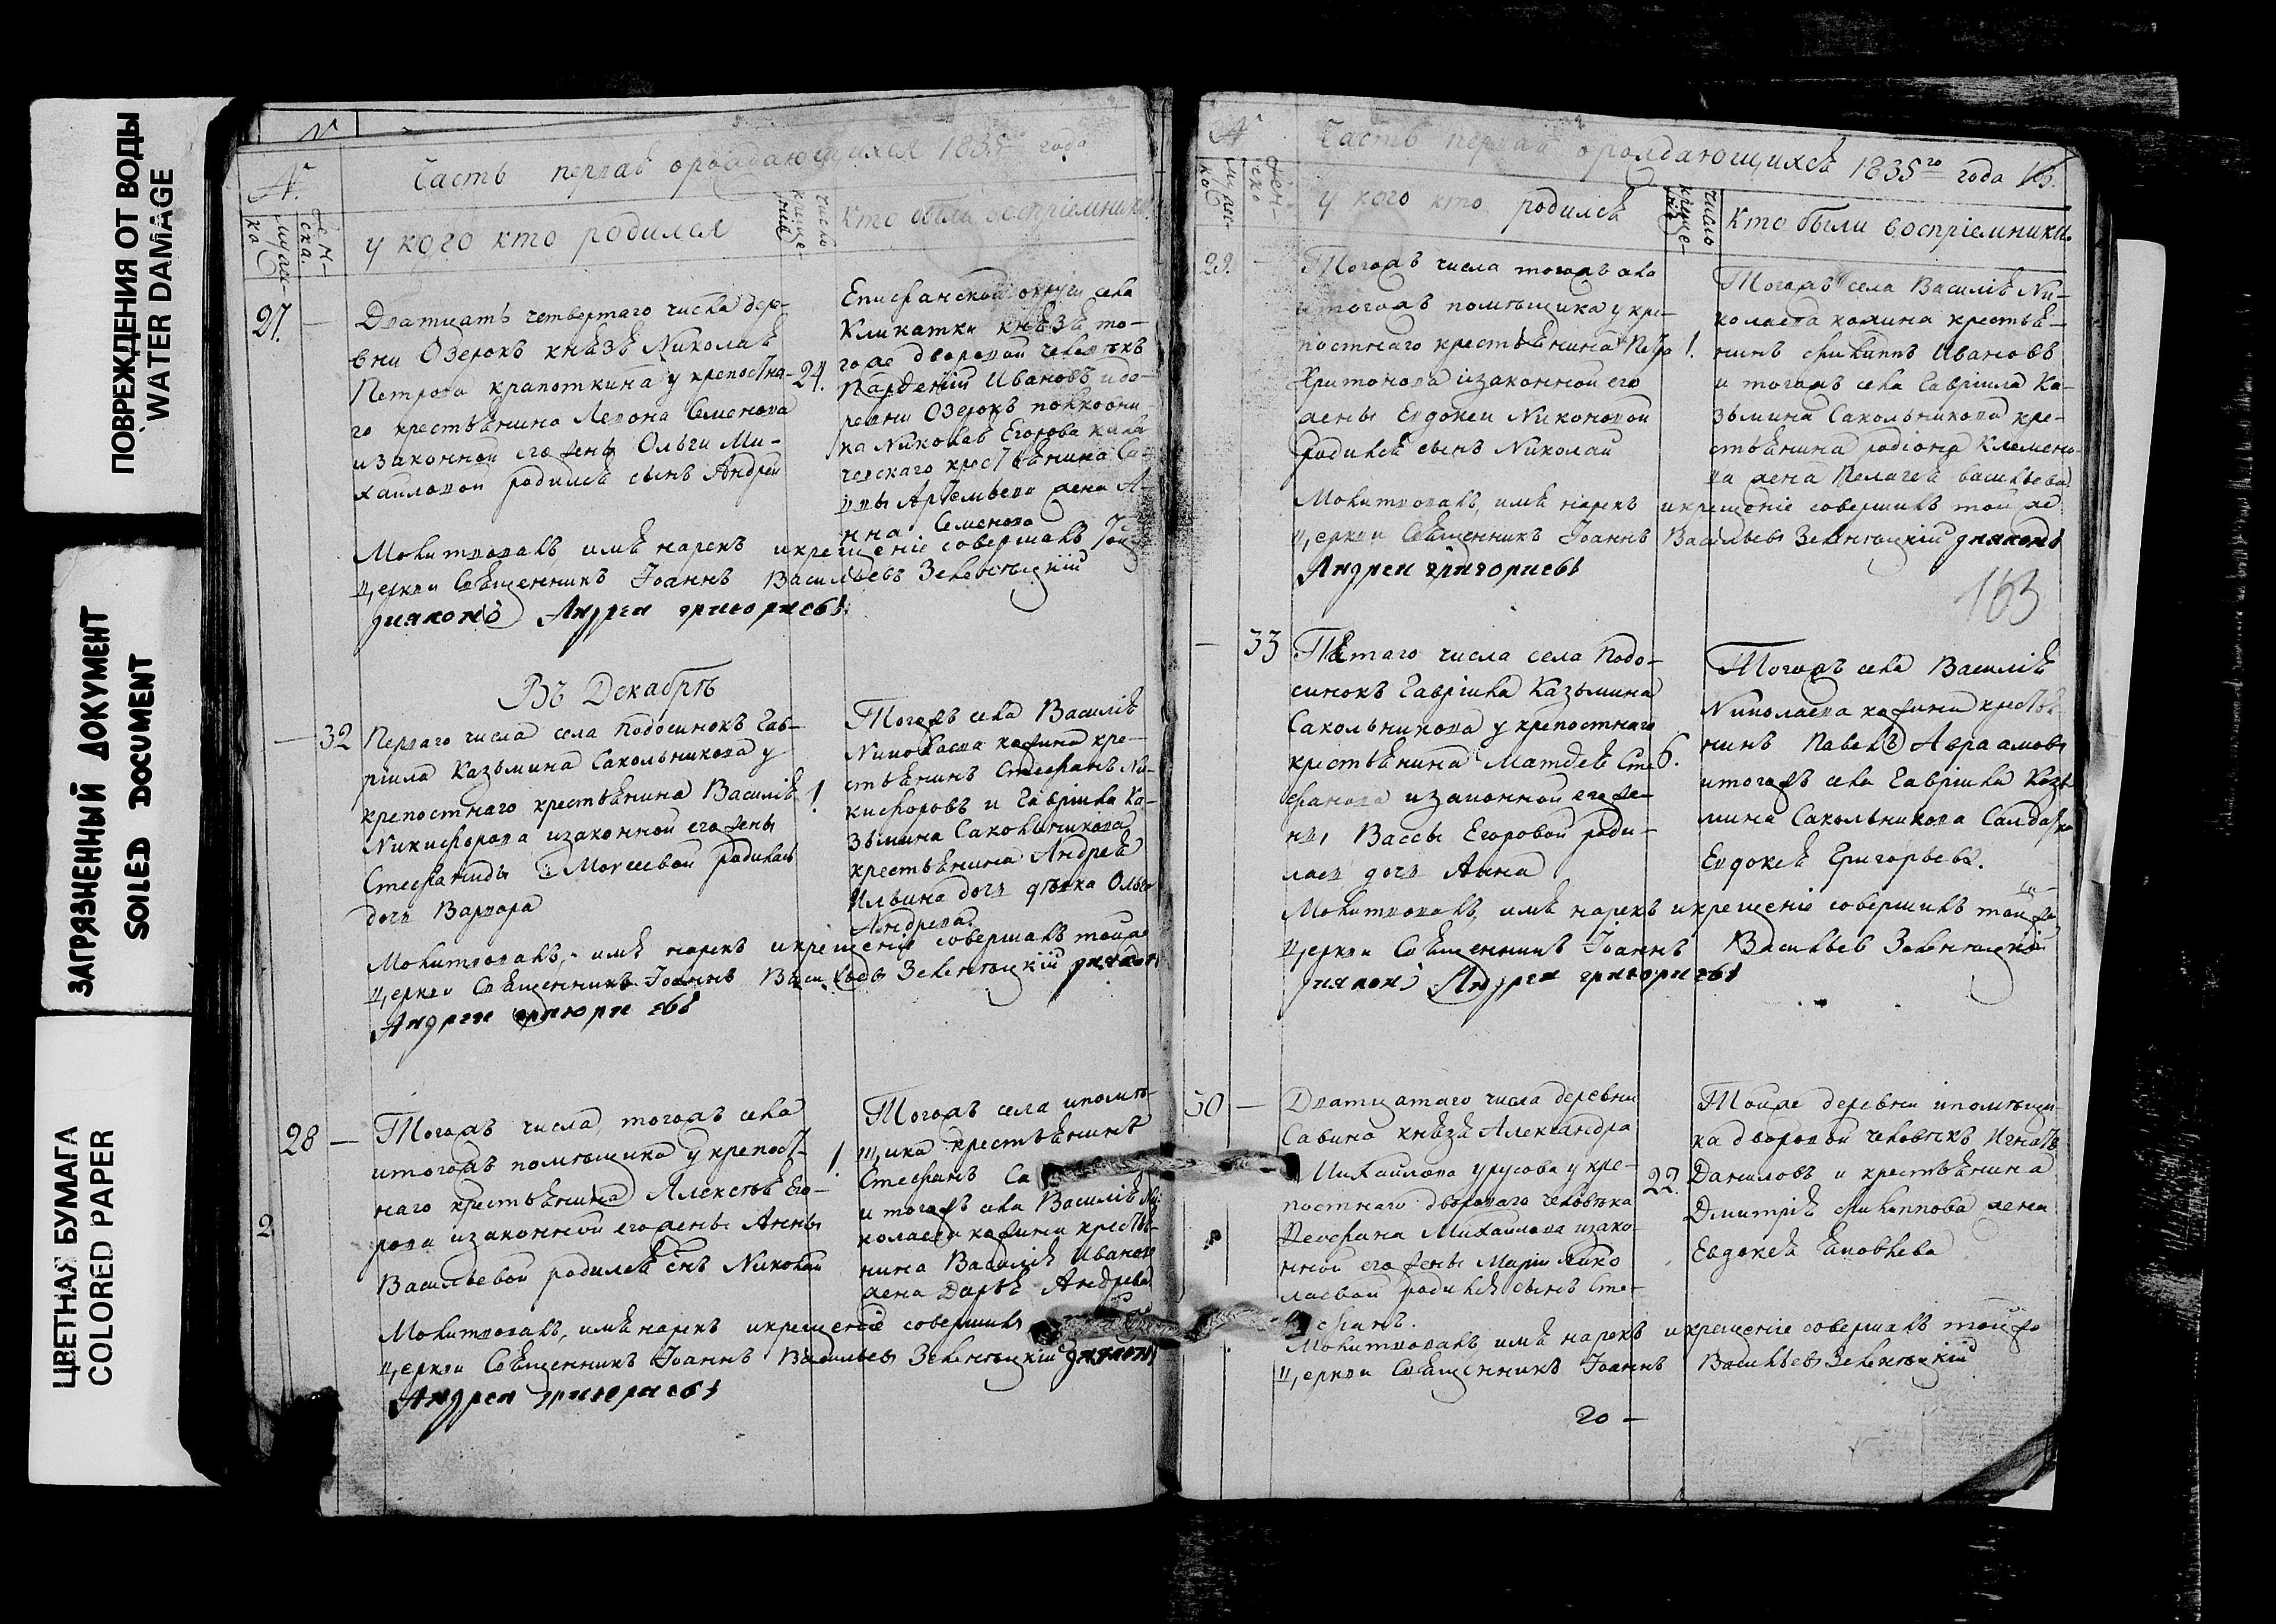 ПОВРЕЖДЕНИЯ ОТ ВОДЫ
WATER DAMAGE
ЗАГРЯЗНЕННЫЙ ДОКУМЕНТ
SOILED DOCUMENT
ЦВЕТНАЯ БУМАГА
COLORED PAPER
№
Часть первая о раждающихся 1835го года
у кого кто родился
число креще-
кто были восприемники
27.
Дватцать четвертаго числа дер-
вни Озерокъ князя Николая
Петрова крапоткина у крепостна-
го крестьянина Леона Семенова
и законной его жены Ольги Ми-
хайловой родился сынъ Андрей
24.
Епифанской округи села
Кликатки князя то-
гоже дворовой человѣкъ
Парфений Ивановъ и де-
ревни Озерокъ полковни-
ка Николая Егорова
крестьянина Са-
ввы Артемьева жена А-
нна Семенова
Молитвовалъ имя нарекъ и крещение совершалъ тойже
церкви Священникъ Иоаннъ Васильевъ Зеленецкий
диаконъ Андрей григориевъ
Въ Декабрѣ
32
Перваго числа села Подосинокъ Гав-
риила Казьмина Сакольникова у
крепостнаго крестьянина Василия
Никифорова и законной его жены
Стефаниды Моисеевой родилась
дочь Варвара
1
Тогожъ села Василия
Николаева кожина кре-
стьянинъ Стефанъ Ни-
кифоровъ и Гавриила Ка-
зьмина Сакольникова
крестьянина Андрея
Ильина дочь дѣвка Ольга
Андреева
Молитвовалъ, имя нарекъ и крещение совершалъ тойже
церкви Священникъ Иоаннъ Васильевъ Зеленецкий диаконъ
Андрей григориевъ
28
Тогожъ числа, тогожъ села
и тогожъ помѣщика у крепост-
наго крестьянина Алексѣя Его-
рова и законной его жены Анны
Васильевой родился снъ Николай
1.
Тогожъ села и помѣ-
щика крестьянинъ
Стефанъ Са
и тогожъ села Василия Ни-
колаева кожина крестья-
нина Василия Иванова
жена Дарья Андреева
Молитвовалъ, имя нарекъ и крещение совершилъ
церкви Священникъ Иоаннъ Васильевъ Зеленецкий диаконъ
Андрей григориевъ
2
№
Часть первая о раждающихся 1835го года 163.
у кого кто родился
число креще-
кто были восприемники
29.
Тогожъ числа тогожъ села
и тогожъ помѣщика у кре-
постнаго крестьянина Петра
Харитонова и законной его
жены Евдокеи Никоновой
родился сынъ Николай
1.
Тогожъ села Василия Ни-
колаева кожина крестья-
нинъ филиппъ Ивановъ
и тогожъ села Гавриила Ка-
зьмина Сакольникова кре-
стьянина родиона Клемено-
ва жена Пелагея васильева
Молитвовалъ имя нарекъ и крещение совершилъ тойже
церкви Священникъ Иоаннъ Васильевъ Зеленецкий диаконъ
Андрей григориевъ
163
33
Пятаго числа села Подо-
синокъ Гавриила Казьмина
Сакольникова у крепостнаго
крестьянина Матвея Сте-
фанова и законной его же-
ны Вассы Егоровой роди-
лась дочь Анна
6.
Тогожъ села Василия
Николаева кожина крестья-
нинъ Павелъ Авраамовъ
и тогожъ села Гавриила Казь-
мина Сакольникова Салдатка
Евдокея Григорьева.
Молитвовалъ, имя нарекъ и крещение совершилъ тойже
церкви Священникъ Иоаннъ Васильевъ Зеленецкий
диаконъ Андрей григориевъ
30
Дватцатаго числа деревни
Савино князя Александра
Михайлова урусова у кре-
постнаго двороваго человѣка
Михайлова и зако-
нной его жены Марии Нико-
лаевой родился сынъ Сте-
фанъ.
22.
Тойже деревни и помѣщи-
ка дворовой человѣкъ Игнатъ
Даниловъ и крестьянина
Дмитрия филиппова жена
Евдокея
Молитвовалъ имя нарекъ и крещение совершалъ тойже
церкви Священникъ Иоаннъ Васильевъ Зеленецкий
20 —